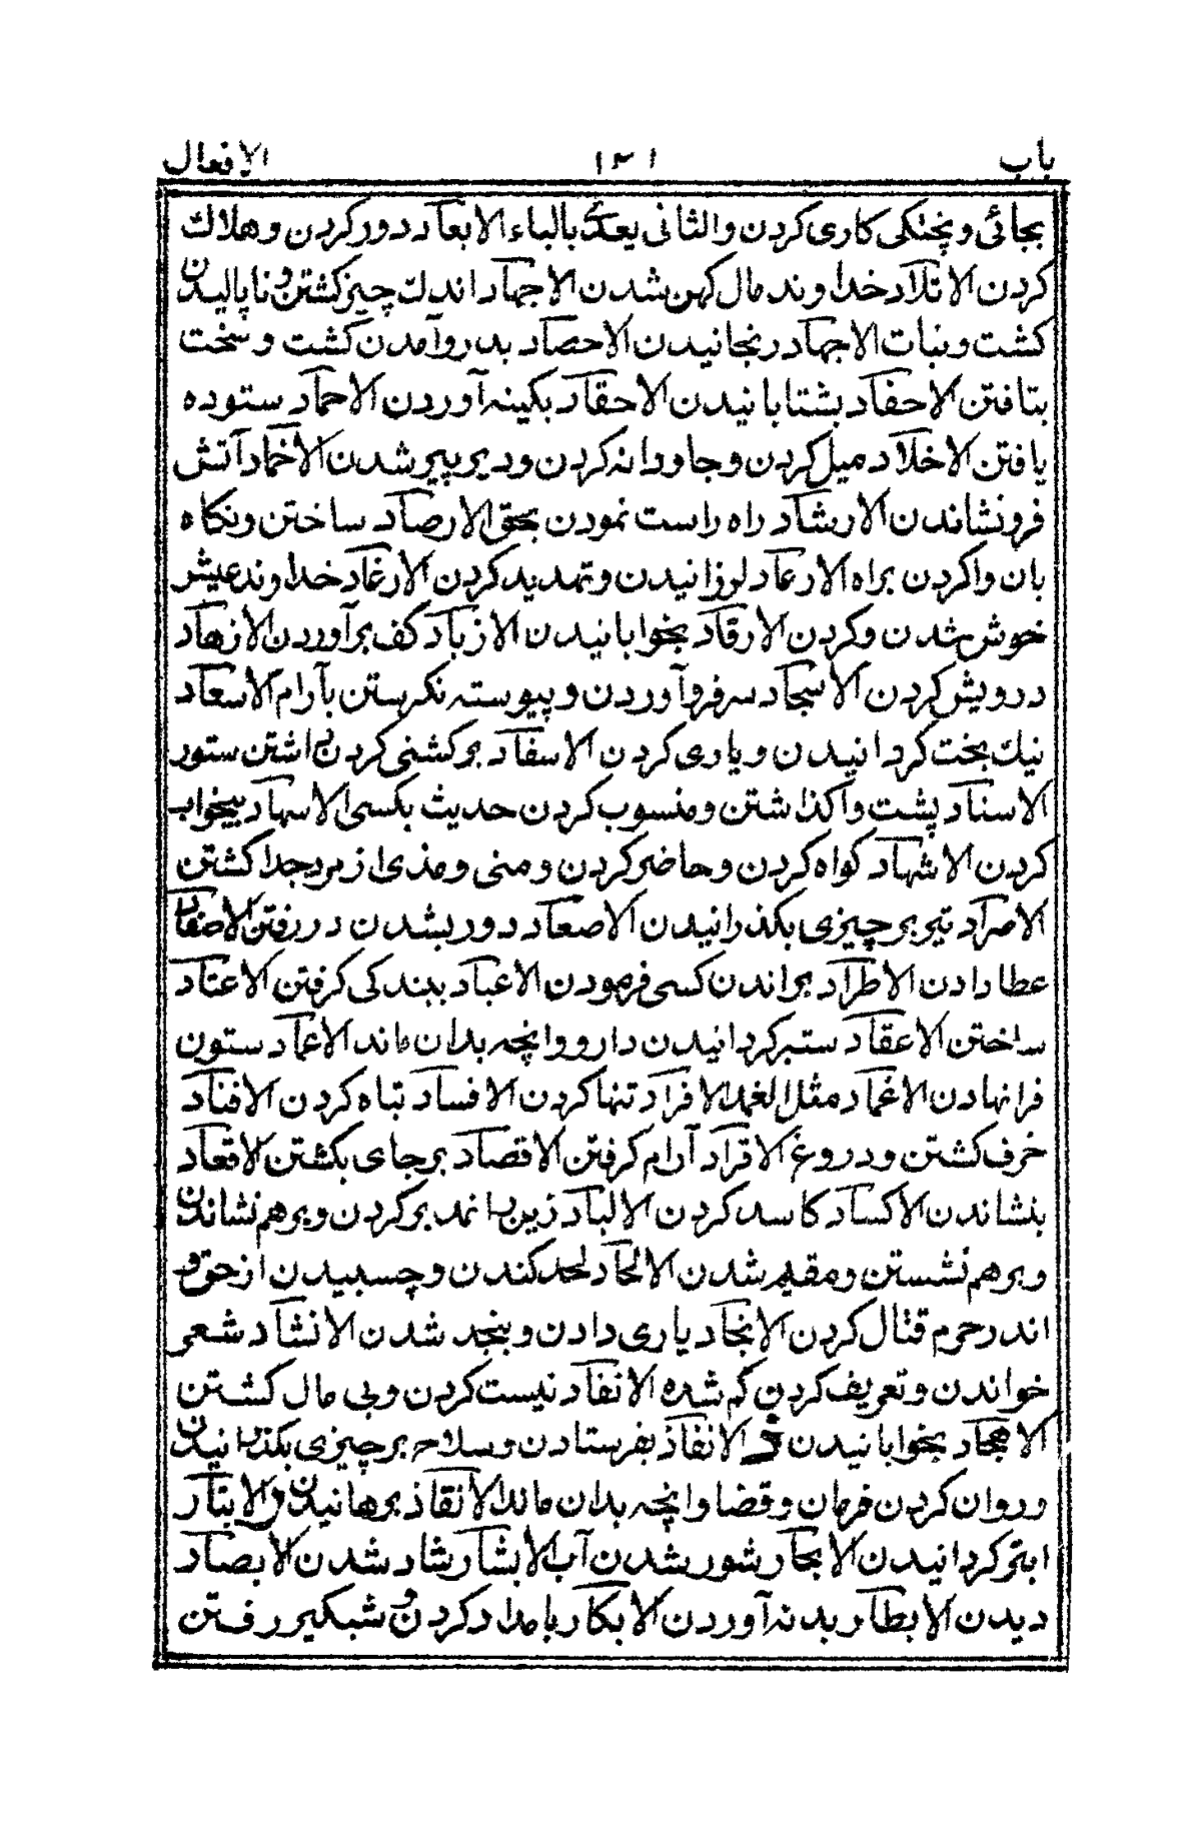 باب ١٣١ الافعال
بجائی وبختکی کاری کردن والثانی یعدی بالباء الابعاد دور کردن وهلاك
کردن الاتلاد خداوند مال کهن شدن الاجماد اندك چیز کشتن وناپالیدن
کشت ونبات الاجهاد رنجانیدن الاحصاد بدرو آمدن کشت وسخت
بتافتن الاحفاد بشتابانیدن الاحقاد بکینه آوردن الاحماد ستوده
یافتن الاخلاد میل کردن وجاودانه کردن ودیر پیر شدن الاخماد آتش
فرونشاندن الارشاد راه راست نمودن بحق الارصاد ساختن ونکاه
بان واکردن براه الارعاد لرزانیدن وتهدید کردن الارغاد خداوند عیش
خوش شدن وکردن الارقاد بخوابانیدن الازباد کف برآوردن الازهاد
درویش کردن الاسجاد سر فرو آوردن وپیوسته نکرستن بآرام الاسعاد
نیك بخت کردانیدن ویاری کردن الاسفاد برکشنی کردن داشتن ستور
الاسناد پشت واکذاشتن ومنسوب کردن حدیث بکسی الاسهاد بیخواب
کردن الاشهاد کواه کردن وحاضر کردن ومنی ومذی از مرد جدا کشتن
الاصراد تیر بر چیزی بکذرانیدن الاصعاد دور بشدن در رفتن الاصفاد
عطا دادن الاطراد براندن کسی فرمودن الاعباد ببندکی کرفتن الاعتاد
ساختن الاعقاد ستبر کردانیدن دارو وانچه بدان ماند الاعماد ستون
فرانهادن الاغماد مثل الغمد الافراد تنها کردن الافساد تباه کردن الافناد
خرف کشتن ودروغ الاقراد آرام کرفتن الاقصاد برجای بکشتن الاقعاد
بنشاندن الاکساد کاسد کردن الالباد زین را نمد بر کردن وبرهم نشاندن
وبرهم نشستن ومقیم شدن الالحاد لحد کندن وچسبیدن از حق و
اندر حرم قتال کردن الانجاد یاری دادن وبنجد شدن الانشاد شعر
خواندن وتعریف کردن کم شده الانفاد نیست کردن وبی مال کشتن
الاهجاد بخوابانیدن ذ الانفاذ بفرستادن وسلاح بر چیزی بکذرانیدن
وروان کردن فرمان وقضا وانچه بدان ماند الانقاذ برهانیدن ر الابتار
ابتر کردانیدن الابحار شور شدن آب الابشار شاد شدن الابصار
دیدن الابطار بدنه آوردن الابکار بامداد کردن و شبکیر رفتن